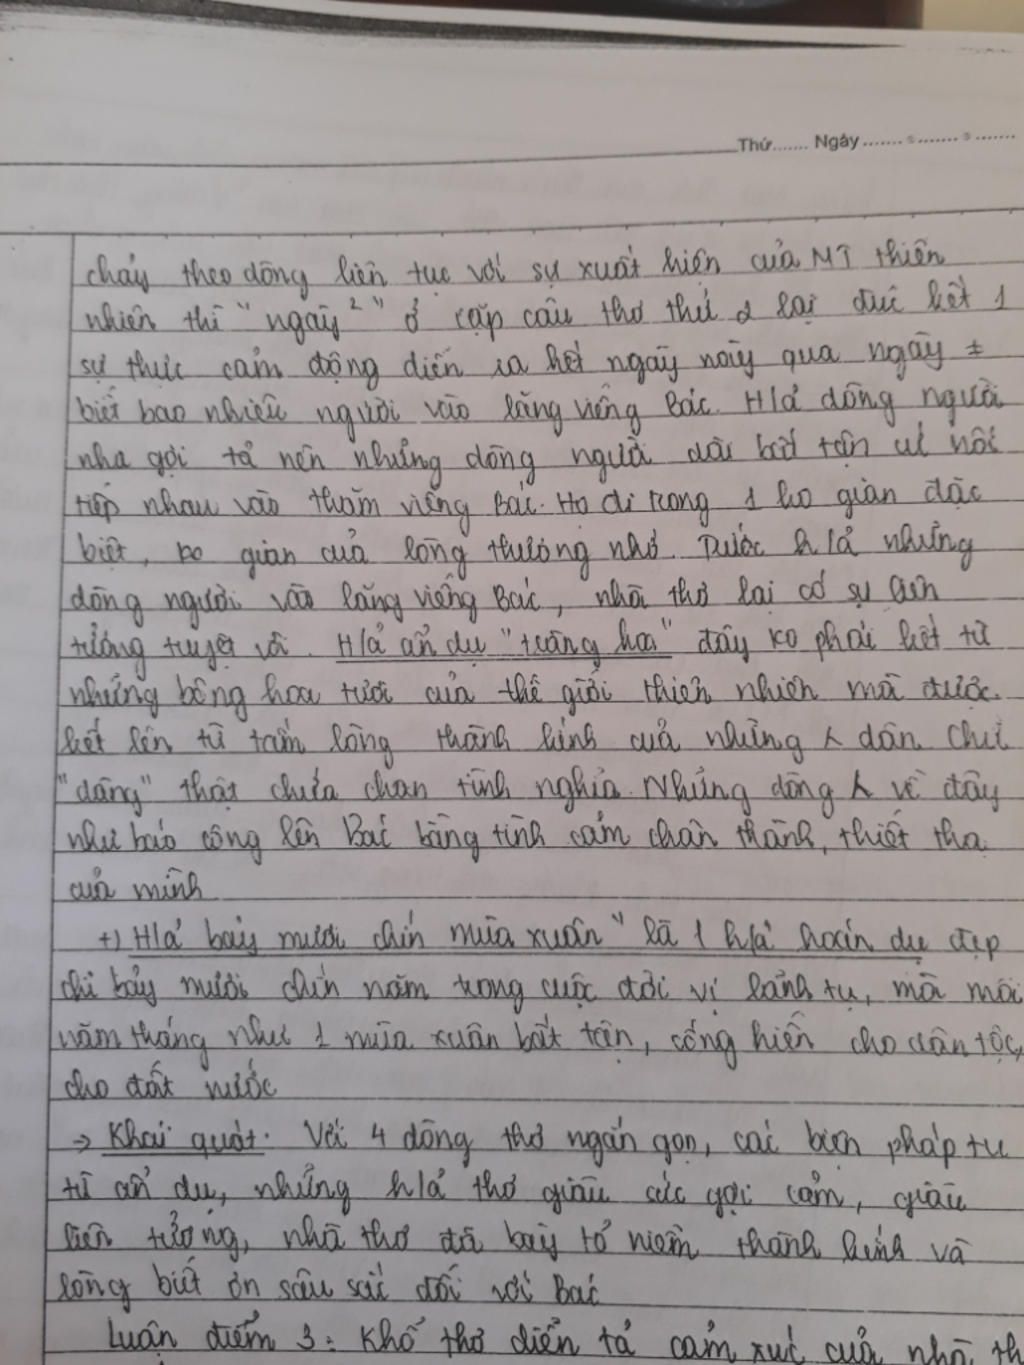 Thứ....... Ngày .......
chảy theo dòng liên tục với sự xuất hiện của MT thiên
nhiên thì "ngày ²" ở cặp câu thơ thứ 2 lại đúc kết 1
sự thực cảm động diễn ra hết ngày này qua ngày ≠
biết bao nhiêu người vào lăng viếng Bác. H/ả dòng người
gợi tả nên những dòng người dài bất tận nối
tiếp nhau vào thăm viếng Bác. Họ đi trong 1 ko gian đặc
biệt, ko gian của lòng thương nhớ. Trước h/ả những
dòng người vào lăng viếng Bác, nhà thơ lại có sự liên
tưởng tuyệt vời. H/ả ẩn dụ "tràng hoa" đây ko phải kết từ
những bông hoa tươi của thế giới thiên nhiên mà được
kết lên từ tấm lòng thành kính của những dân chữ
"dâng" thật chứa chan tình nghĩa. Những dòng về đây
như báo công lên Bác bằng tình cảm chân thành, thiết tha
của mình
+) H/ả bảy mươi chín mùa xuân" là 1 h/ả hoán dụ đẹp
chỉ bảy mươi chín năm trong cuộc đời vị lãnh tụ, mà mỗi
năm tháng như 1 mùa xuân bất tận, cống hiến cho dân tộc,
cho đất nước
→ Khái quát: Với 4 dòng thơ ngắn gọn, các biện pháp tu
từ ẩn dụ, những h/ả thơ giàu sức gợi cảm, giàu
liên tưởng, nhà thơ đã bày tỏ niềm thành kính và
lòng biết ơn sâu sắc đối với Bác
Luận điểm 3: Khổ thơ diễn tả cảm xúc của nhà th